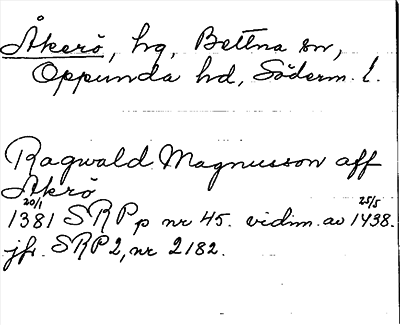 Åkerö, hg, Bettna sn,
Oppunda hd, Söderm. l.
Ragwald Magnusson aff
Åkrö
20/1 25/5
1381 SRP p nr 45. vidim. av 1438.
jfr. SRP 2, nr 2182.